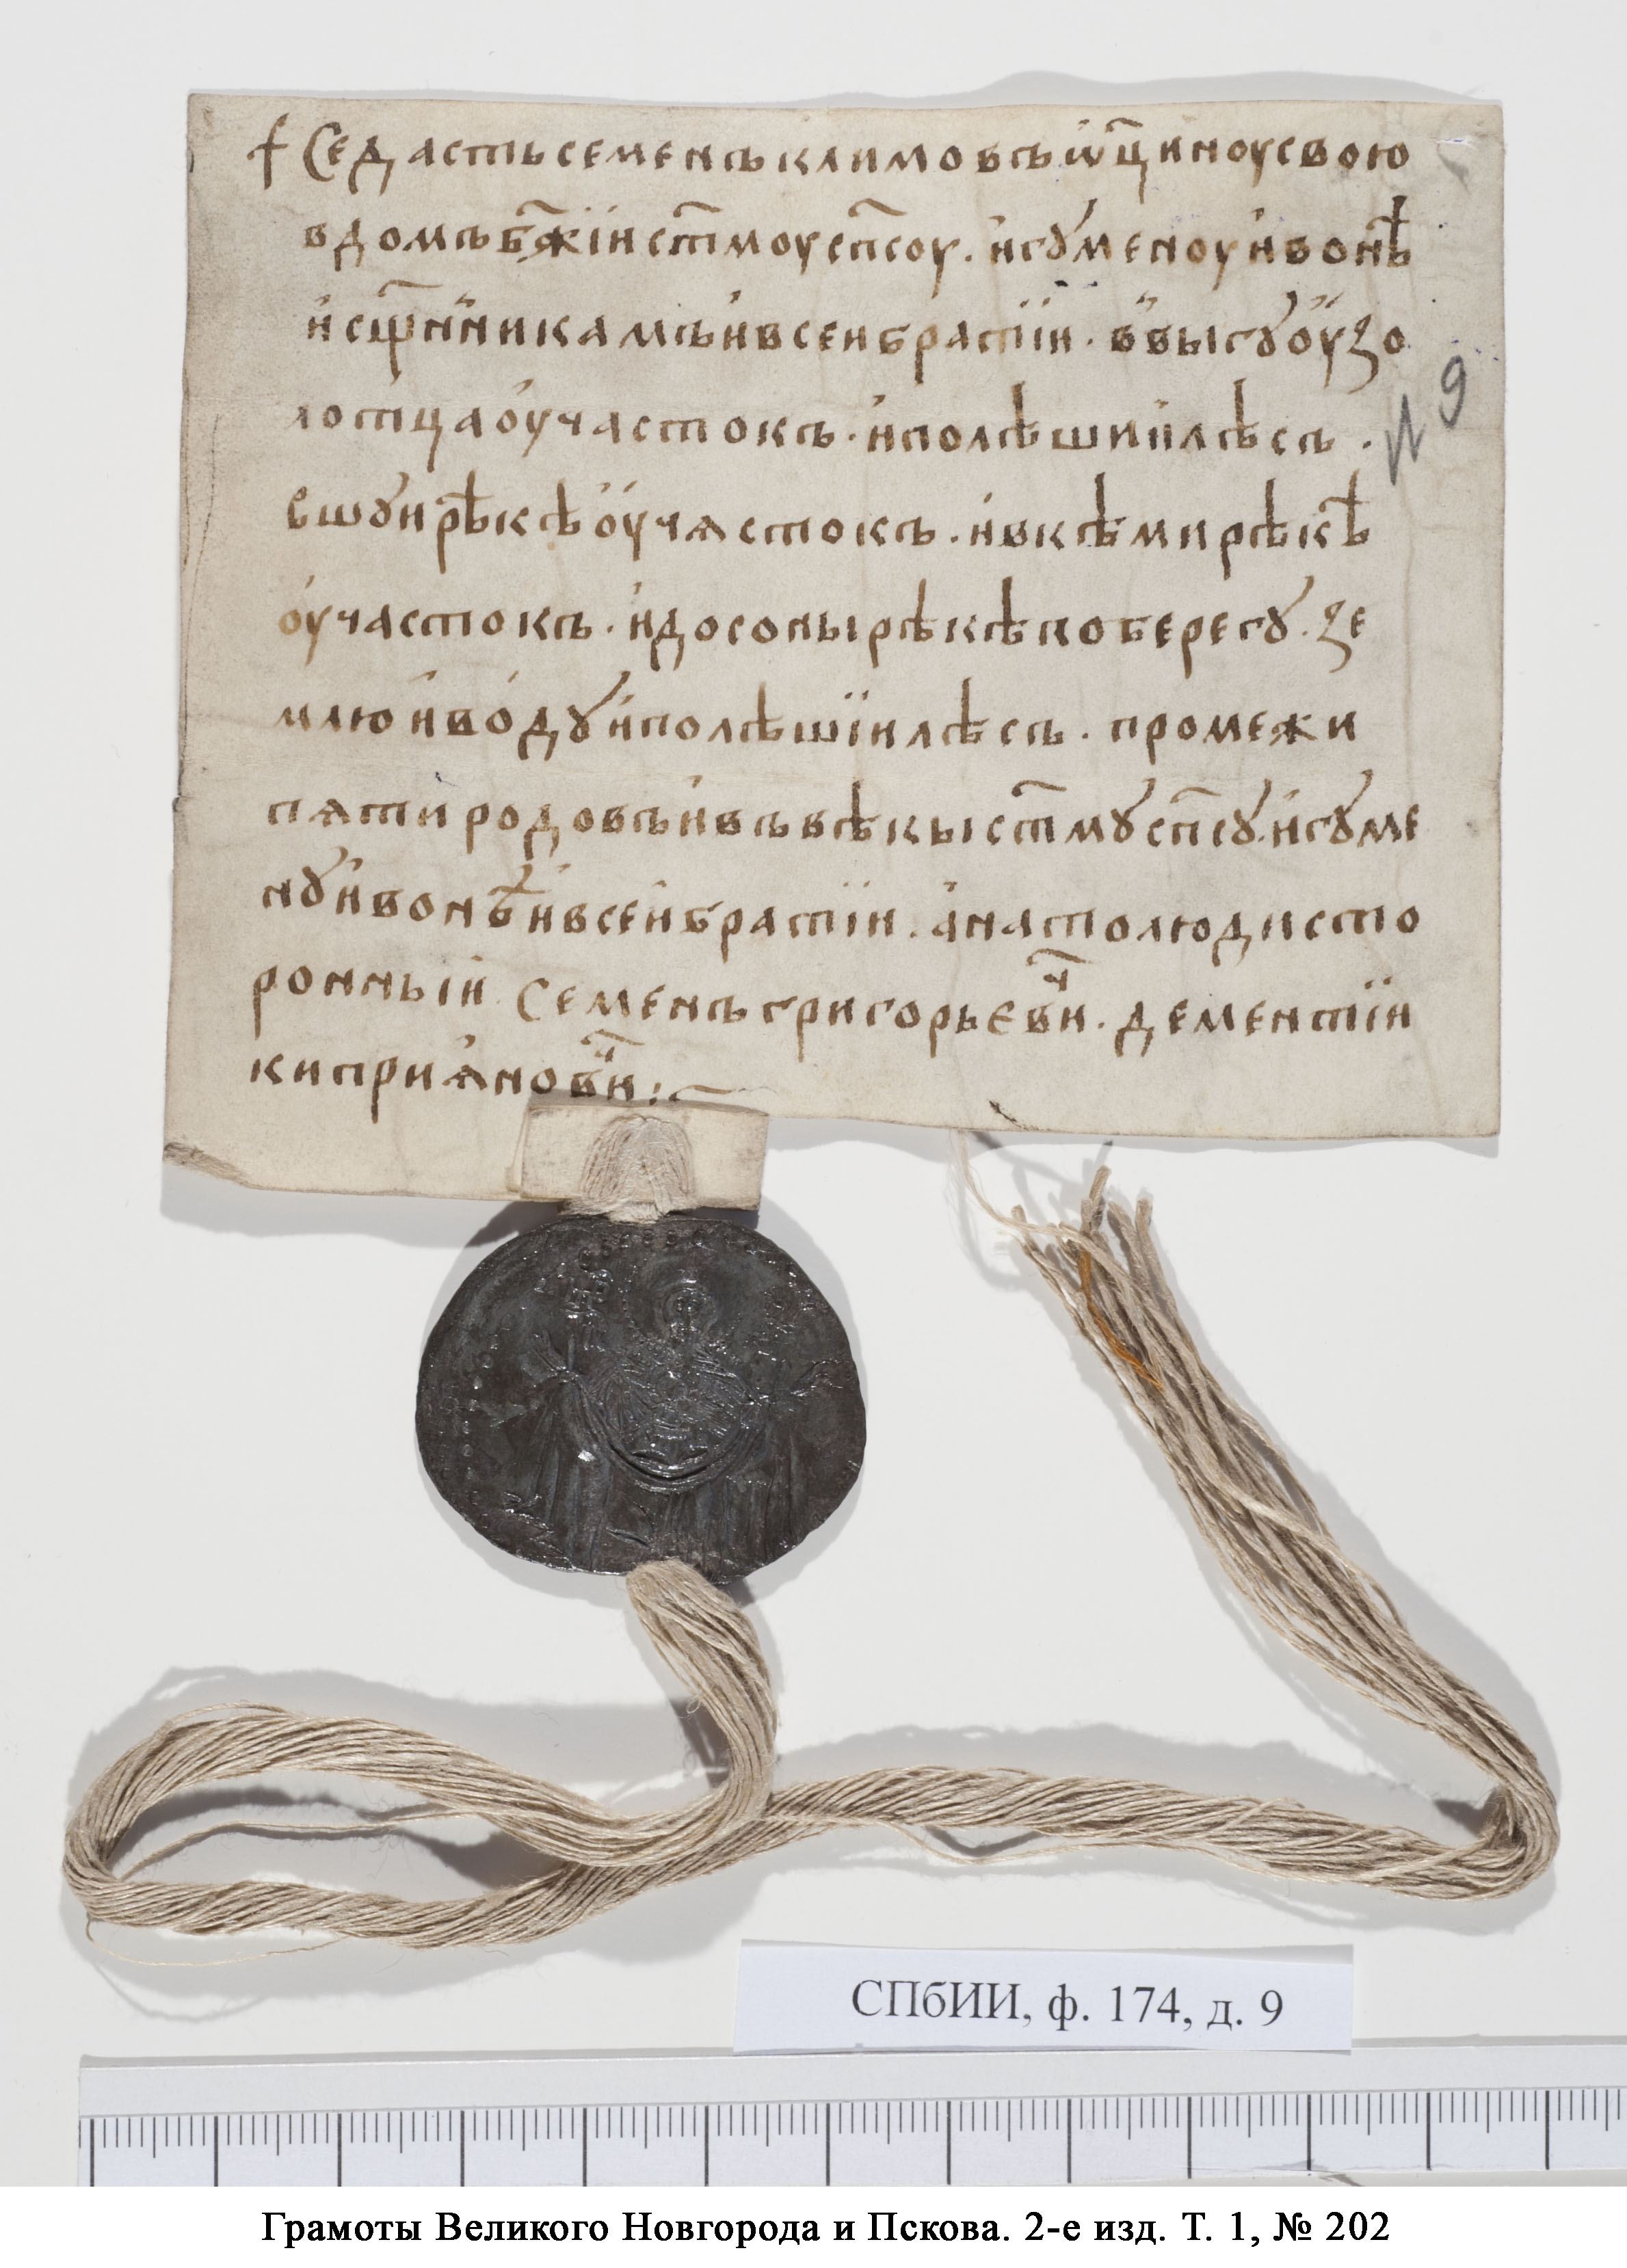 † Се дасть семенъ климовъ ѿц҃иноу свою
в домъ бж҃іи ст҃моу сп҃соу . игꙋменоу ивонѣ
и сщ҃нникамъ и всеи братіи . в выгꙋ оу зо
лотца оучастокъ . и полѣшии лѣсъ .
в шꙋи рѣкѣ оучѧстокъ . и в кѣми рѣкѣ
оучастокъ . и до соны рѣкѣ по берегꙋ . зе
млю и водꙋ и полѣшіи лѣсъ . промежи
пѧти родовъ и въ вѣкы ст҃мꙋ сп҃сꙋ . игꙋме
нꙋ ивонѣ и всеи братіи . а на то люди сто
ронныи . Семенъ григорьєвч҃и . дементіи
киприѧновч҃и :~
№ 9
СПбИИ, ф. 174, д. 9
Грамоты Великого Новгорода и Пскова. 2-е изд. Т. 1, № 202